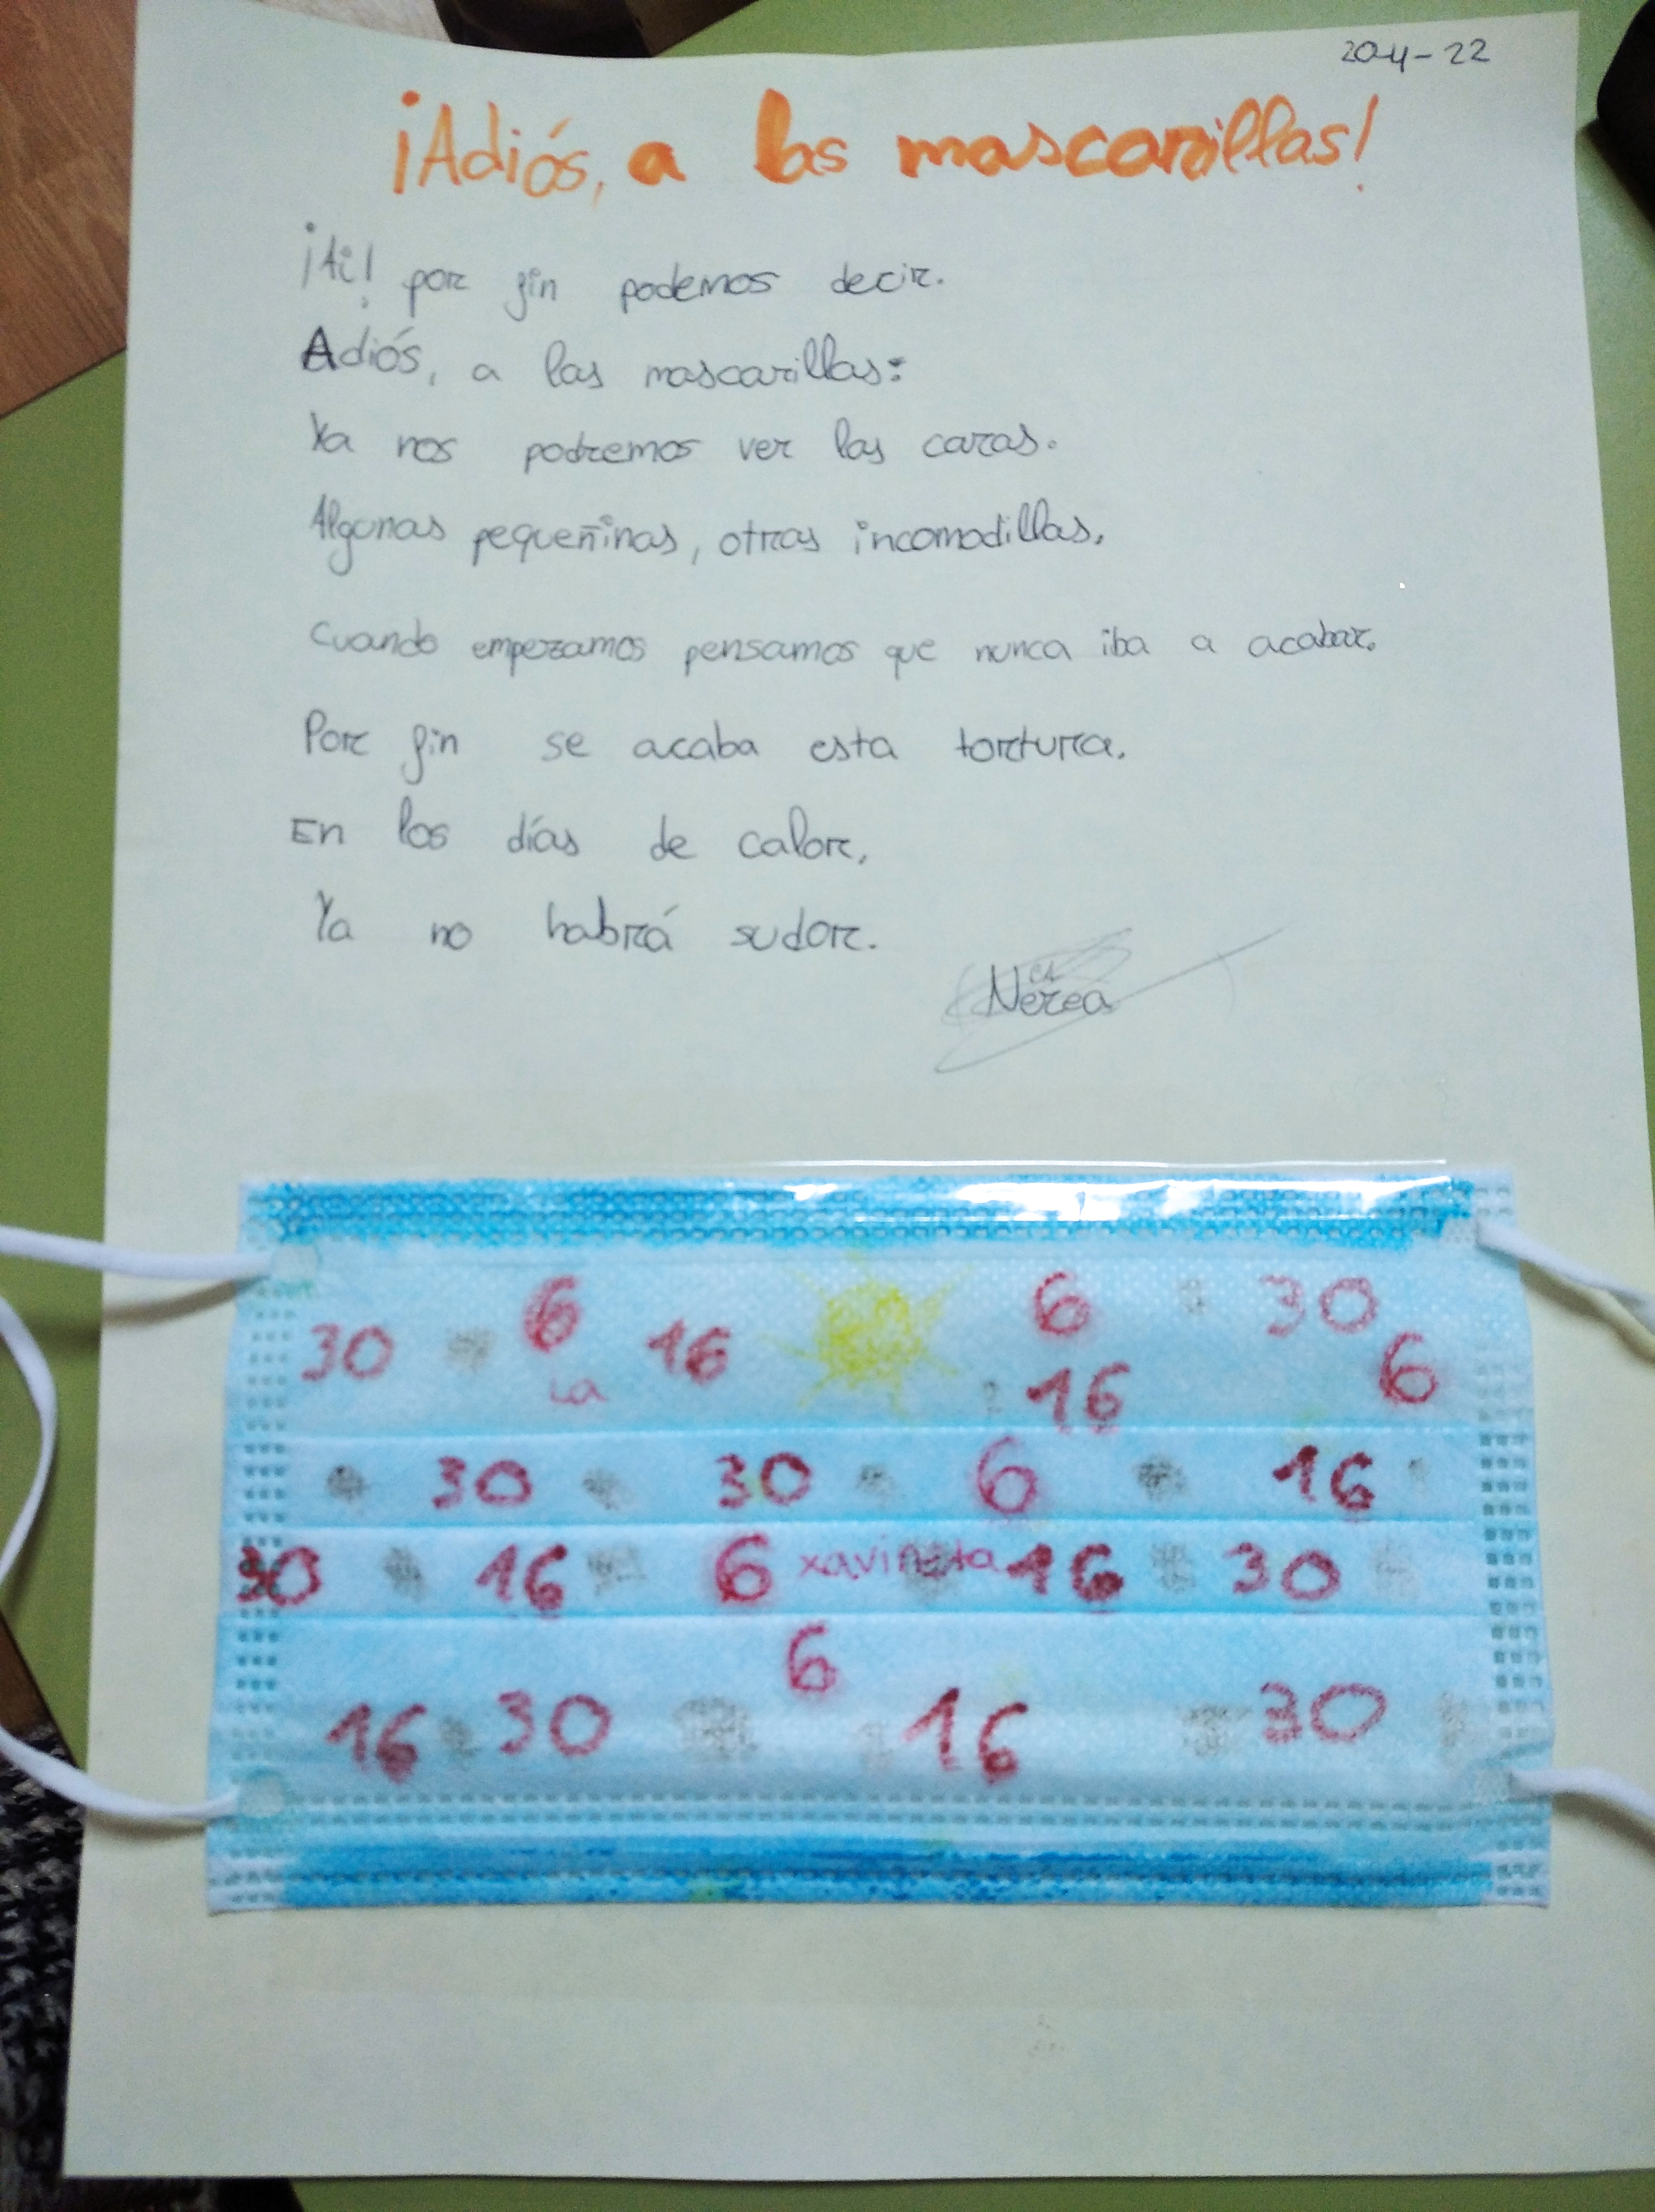 20-4-22
¡Adiós, a las mascarillas!
¡Ai! por fin podemos decir.
Adiós, a las mascarillas:
Ya nos podremos ver las caras.
Algunas pequeñinas, otras incomodillas,
Cuando empezamos pensamos que nunca iba a acabar.
Por fin se acaba esta tortura.
En los días de calor,
Ya no habrá sudor.
Nerea
30 6 16 6 30
La 16 6
30 30 6 16
30 16 6 xavineta 16 30
6
16 30 16 30